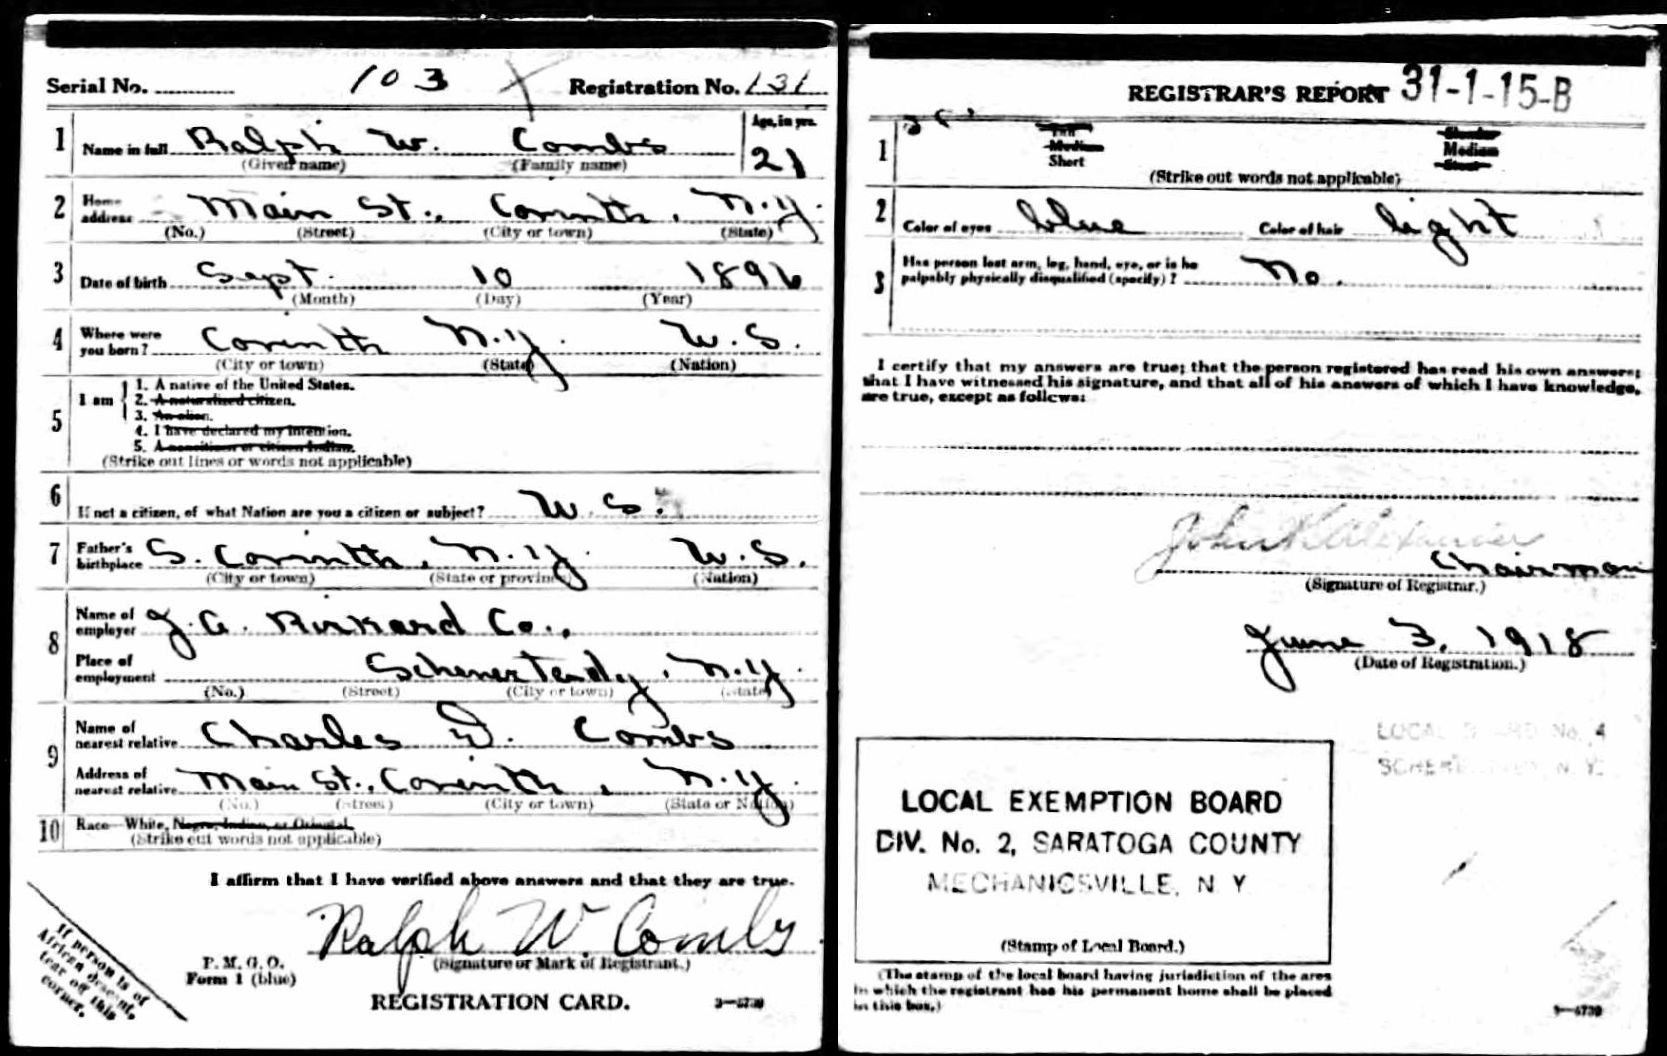 Serial No. 103 Registration No. 131
1 Name in full Ralph W. Combs Age, in yrs. 21
(Given name) (Family name)
2 Home address Main St., Corinth, N.Y.
(No.) (Street) (City or town) (State)
3 Date of birth Sept. 10 1896
(Month) (Day) (Year)
4 Where were you born? Corinth N.Y. U.S.
(City or town) (State) (Nation)
5 I am
1. A native of the United States.
2. A naturalized citizen.
3. An alien.
4. I have declared my intention.
5. A noncitizen or citizen Indian.
(Strike out lines or words not applicable)
6 If not a citizen, of what Nation are you a citizen or subject? U.S.
7 Father's birthplace S. Corinth, N.Y. U.S.
(City or town) (State or province) (Nation)
8 Name of employer J.G. Rickard Co.,
Place of employment Schenectady, N.Y.
(No.) (Street) (City or town) (State)
9 Name of nearest relative Charles D. Combs
Address of nearest relative Main St., Corinth, N.Y.
(No.) (Street) (City or town) (State or Nation)
10 Race—White, Negro, Indian, or Oriental.
(Strike out words not applicable)
I affirm that I have verified above answers and that they are true.
Ralph W Combs
(Signature or Mark of Registrant.)
P. M. G. O.
Form 1 (blue)
REGISTRATION CARD.
3—4739
If person is of
African descent,
tear off this
corner.
REGISTRAR'S REPORT 31-1-15-B
1 Tall Slender
Medium Medium
Short Stout
(Strike out words not applicable)
2 Color of eyes blue Color of hair light
3 Has person lost arm, leg, hand, eye, or is he
palpably physically disqualified (specify)? No.
I certify that my answers are true; that the person registered has read his own answers;
that I have witnessed his signature, and that all of his answers of which I have knowledge,
are true, except as follows:
John Alexander
Chairman
(Signature of Registrar.)
June 3, 1918
(Date of Registration.)
LOCAL BOARD No. 4
SCHENECTADY, N. Y.
LOCAL EXEMPTION BOARD
DIV. No. 2, SARATOGA COUNTY
MECHANICSVILLE, N Y
(Stamp of Local Board.)
(The stamp of the local board having jurisdiction of the area
in which the registrant has his permanent home shall be placed
in this box.)
3—4739